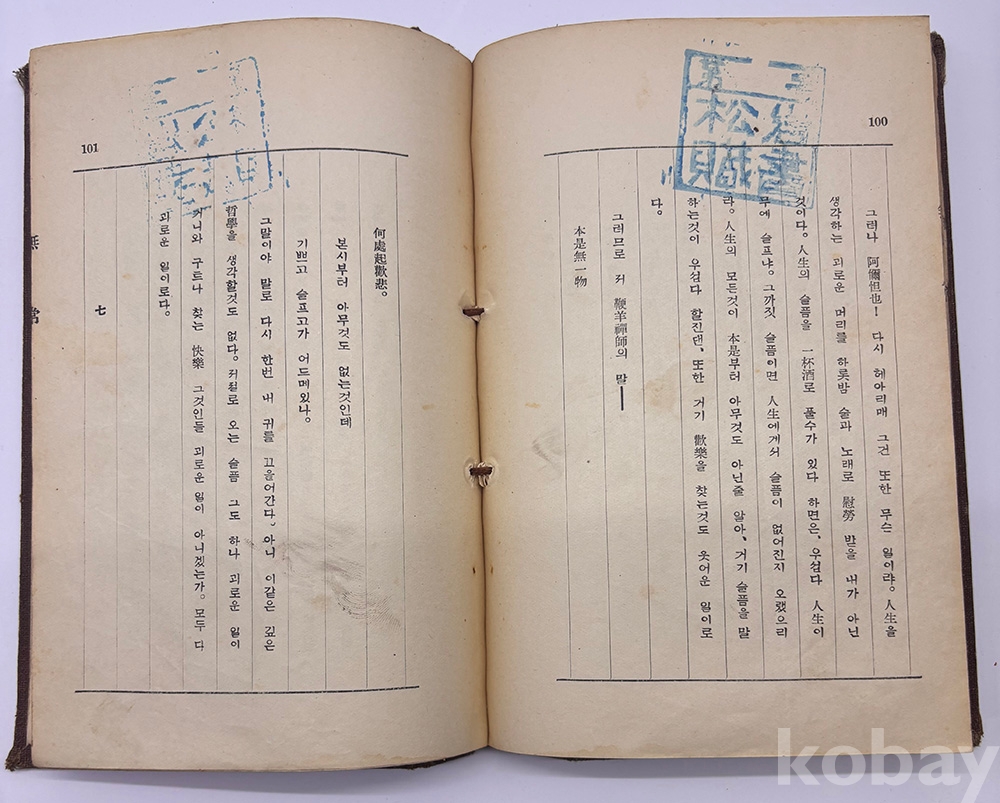 100
그러나 阿爾怛也! 다시 헤아리매 그건 또한 무슨 일이랴。人生을
생각하는 괴로운 머리를 하롯밤 술과 노래로 慰勞 받을 내가 아닌
것이다。人生의 슬픔을 一杯酒로 풀수가 있다 하면은、우섭다 人生이
무에 슬프냐。그까짓 슬픔이면 人生에게서 슬픔이 없어진지 오랬으리
라。人生의 모든것이 本是부터 아무것도 아닌줄 알아、거기 슬픔을 말
하는것이 우섭다 할진댄、또한 거기 歡樂을 찾는것도 웃어운 일이로
다。
그러므로 저 鞭羊禪師의 말━━
本是無一物
101
何處起歡悲。
본시부터 아무것도 없는것인데
기쁘고 슬프고가 어드메있나。
그말이야 말로 다시 한번 내 귀를 끄을어간다。아니 이같은 깊은
哲學을 생각할것도 없다。저절로 오는 슬픔 그도 하나 괴로운 일이
거니와 구트나 찾는 快樂 그것인들 괴로운 일이 아니겠는가。모두 다
괴로운 일이로다。
七
無常
第一三
松
kobay